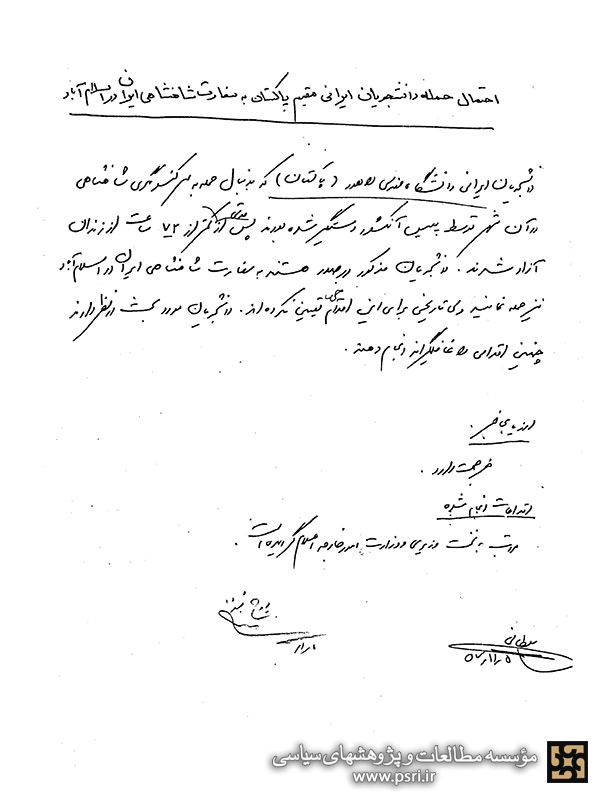 احتمال حمله دانشجویان ایرانی مقیم پاکستان به سفارت شاهنشاهی ایران در اسلام آباد
دانشجویان ایرانی دانشگاه مهندسی لاهور (پاکستان) که بدنبال حمله به سرکنسولگری شاهنشاهی
در آن شهر توسط پلیس آنکشور دستگیر شده بودند پس از مدتی کمتر از ۷۲ ساعت از زندان
آزاد شدند. دانشجویان مذکور درصدد هستند به سفارت شاهنشاهی ایران در اسلام آباد
نیز حمله نمایند ولی تاریخی برای این اقدام تعیین نکرده‌اند. دانشجویان مورد بحث در نظر دارند
چنین اقدامی را غافلگیرانه انجام دهند.
ارزیابی خبر.
خبر صحت دارد.
اقدامات انجام شده
مراتب به نخست وزیری و وزارت امور خارجه اعلام گردیده است.
سلطانی
مؤسسه مطالعات و پژوهشهای سیاسی
www.psri.ir